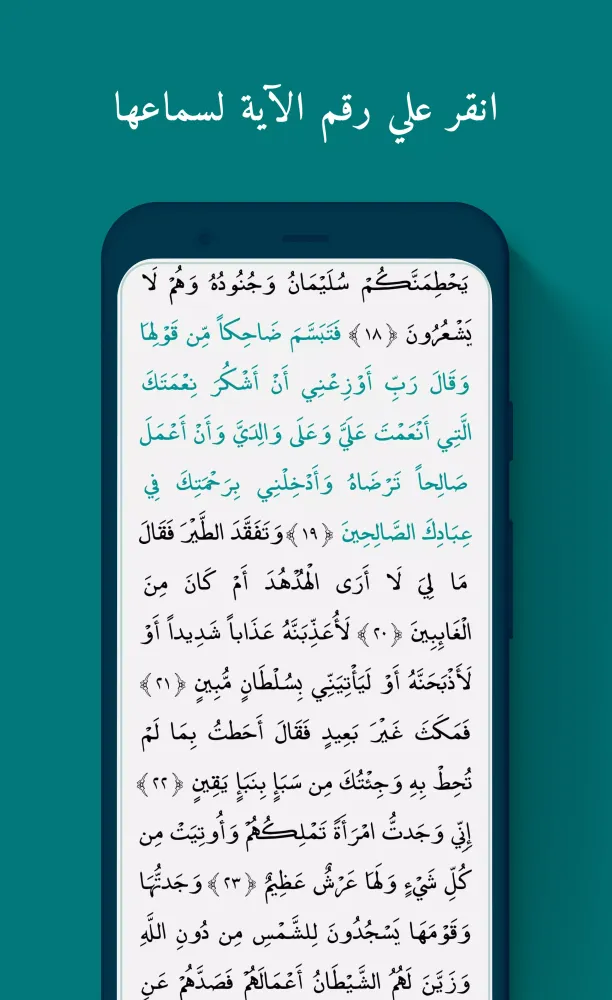 انقر علي رقم الآية لسماعها
يَحْطِمَنَّكُمْ سُلَيْمَانُ وَجُنُودُهُ وَهُمْ لَا
يَشْعُرُونَ ﴿١٨﴾ فَتَبَسَّمَ ضَاحِكاً مِّن قَوْلِهَا
وَقَالَ رَبِّ أَوْزِعْنِي أَنْ أَشْكُرَ نِعْمَتَكَ
الَّتِي أَنْعَمْتَ عَلَيَّ وَعَلَى وَالِدَيَّ وَأَنْ أَعْمَلَ
صَالِحاً تَرْضَاهُ وَأَدْخِلْنِي بِرَحْمَتِكَ فِي
عِبَادِكَ الصَّالِحِينَ ﴿١٩﴾ وَتَفَقَّدَ الطَّيْرَ فَقَالَ
مَا لِيَ لَا أَرَى الْهُدْهُدَ أَمْ كَانَ مِنَ
الْغَائِبِينَ ﴿٢٠﴾ لَأُعَذِّبَنَّهُ عَذَاباً شَدِيداً أَوْ
لَأَذْبَحَنَّهُ أَوْ لَيَأْتِيَنِّي بِسُلْطَانٍ مُّبِينٍ ﴿٢١﴾
فَمَكَثَ غَيْرَ بَعِيدٍ فَقَالَ أَحَطتُ بِمَا لَمْ
تُحِطْ بِهِ وَجِئْتُكَ مِن سَبَإٍ بِنَبَإٍ يَقِينٍ ﴿٢٢﴾
إِنِّي وَجَدتُّ امْرَأَةً تَمْلِكُهُمْ وَأُوتِيَتْ مِن
كُلِّ شَيْءٍ وَلَهَا عَرْشٌ عَظِيمٌ ﴿٢٣﴾ وَجَدتُّهَا
وَقَوْمَهَا يَسْجُدُونَ لِلشَّمْسِ مِن دُونِ اللَّهِ
وَزَيَّنَ لَهُمُ الشَّيْطَانُ أَعْمَالَهُمْ فَصَدَّهُمْ عَنِ